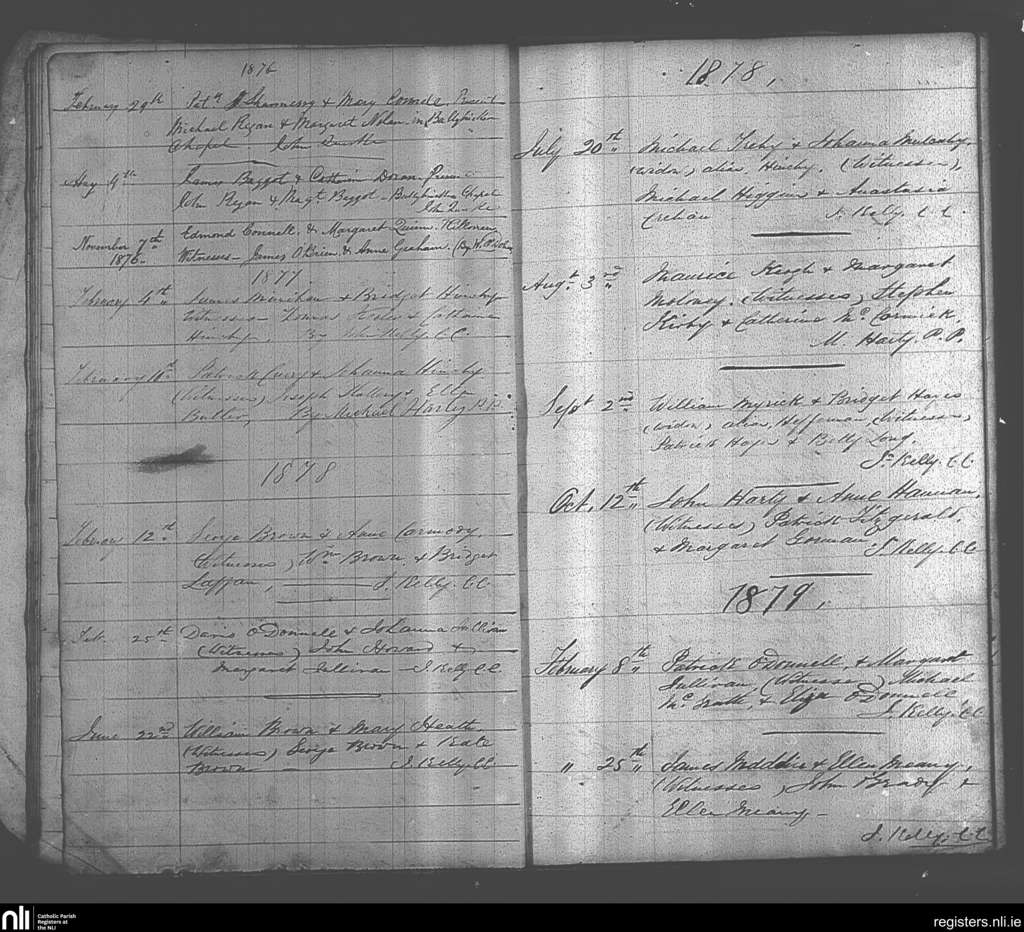 1876
February 29th Patk Shannessy & Mary Connell, Present
Michael Ryan & Margaret Nolan in Ballybricken
Chapel John Quirke
9th James Baggot & Doran
John Ryan & Magt Baggot - Chapel
John Quirke
November 7th 1876 Edmond Connell & Margaret Quinn
Witnesses - James O'Brien & Anne Graham
1877
February 4th James & Bridget Hinchy
Witnesses Thomas & Catherine
Hinchy, By John Kelly. C C
February 11th Patrick & Johanna Hinchy
(Witnesses) Joseph Slattery &
Butler, By Michael Harty P.P.
1878
February 12th George Brown & Anne Carmody,
(Witnesses) Wm Brown & Bridget
Laffan, J. Kelly. CC
Feb. 25th Davis O'Donnell & Johanna Sullivan
(Witnesses) John Howard &
Margaret Sullivan - J. Kelly CC
June 22nd William Brown & Mary Heath
(Witnesses) George Brown & Kate
Brown - J. Kelly CC
1878,
July 20th Michael & Johanna
(widw) alias, Hinchy. (Witnesses),
Michael Higgins & Anastasia
J. Kelly. C C.
Augt 3rd Maurice Keogh & Margaret
Moloney. (Witnesses) Stephen
Kirby & Catherine Mc Cormick.
M. Harty. P. P.
Sept 2nd William Myrick & Bridget Hayes
(widw) alias, Heffernan, (Witnesses)
Patrick Hayes & Long.
J. Kelly. CC
Oct, 12th John Harty & Anne Hannan,
(Witnesses) Patrick Fitzgerald,
& Margaret Gorman J. Kelly. CC
1879,
February 8th Patrick O'Donnell, & Margaret
Sullivan, (Witnesses) Michael
Mc Grath, & Eliza O'Donnell
J. Kelly. CC
" 25th James Madden & Ellen Meany,
(Witnesses), John O'Grady &
Ellen Meany -
J. Kelly. CC
nli
Catholic Parish
Registers at
the NLI
registers.nli.ie